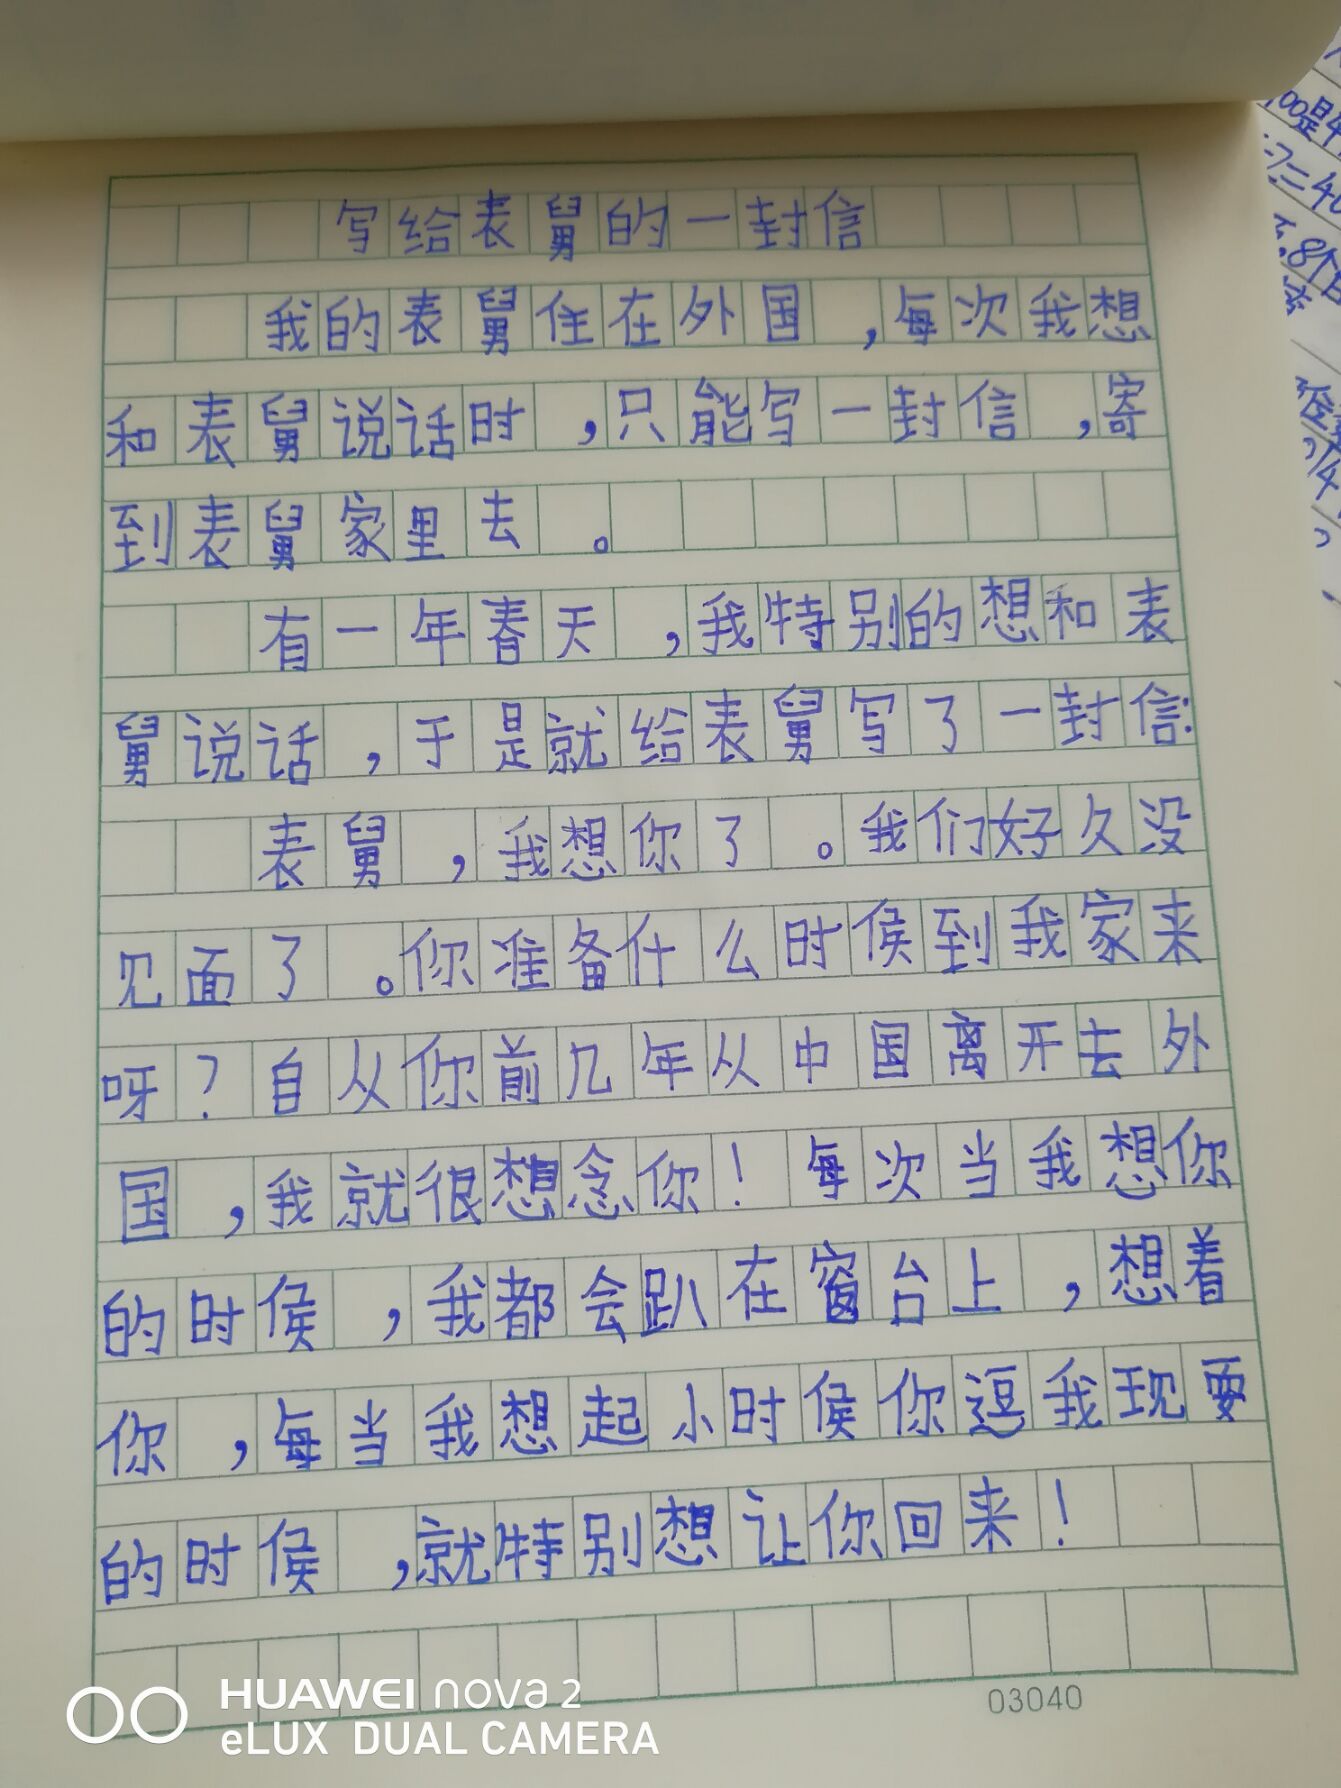 写给表舅的一封信
我的表舅住在外国，每次我想
和表舅说话时，只能写一封信，寄
到表舅家里去。
有一年春天，我特别的想和表
舅说话，于是就给表舅写了一封信：
表舅，我想你了。我们好久没
见面了。你准备什么时候到我家来
呀？自从你前几年从中国离开去外
国，我就很想念你！每次当我想你
的时候，我都会趴在窗台上，想着
你，每当我想起小时候你逗我现要
的时候，就特别想让你回来！
03040
HUAWEI nova 2
eLUX DUAL CAMERA